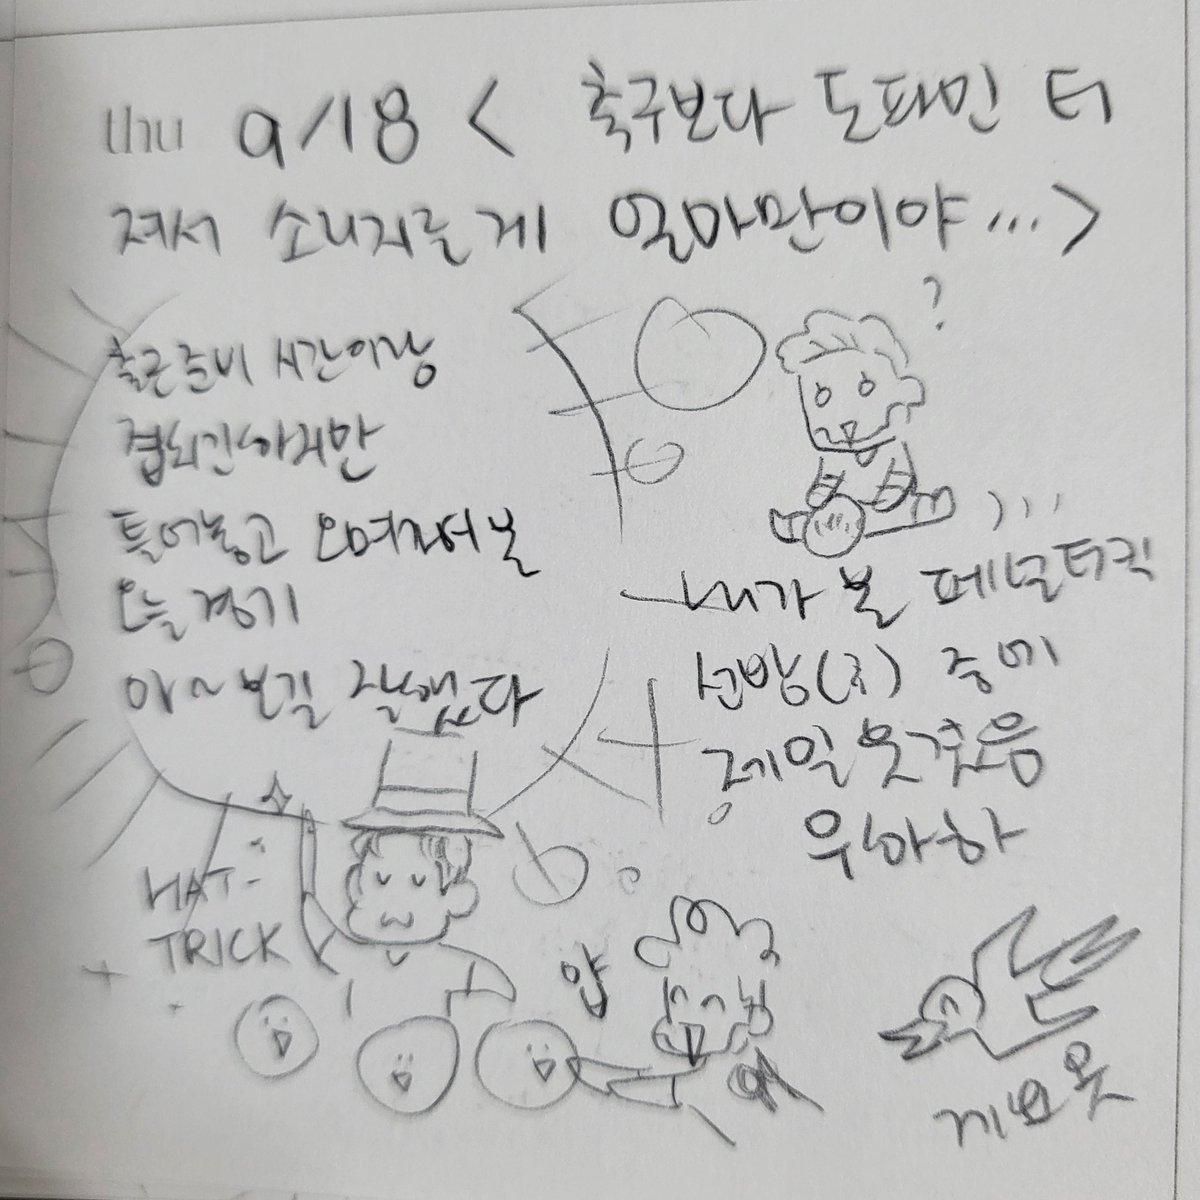 thu 9/18 < 축구보다 도파민 터
져서 소리지른게 얼마만이야...>
출근준비 시간이랑
겹치긴하지만
틀어놓고 오며가며 본
오늘 경기
아~ 보길 잘했다
?
내가 본 페널티킥
선방(?) 중에
제일 웃겼음
우하하
HAT-
TRICK
얍